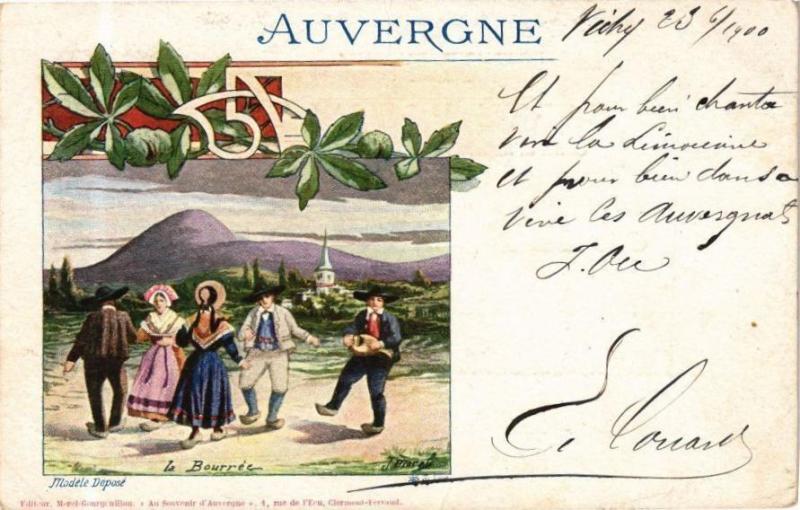 AUVERGNE
Vichy 23 6/1900
Et pour bien chanta
vive la Limousine
et pour bien dansa
vive les Auvergnats
la Bourrée
Modèle Déposé
Editeur, Morel-Gourguillon, « Au Souvenir d'Auvergne », 4, rue de l'Ecu, Clermont-Ferrand.